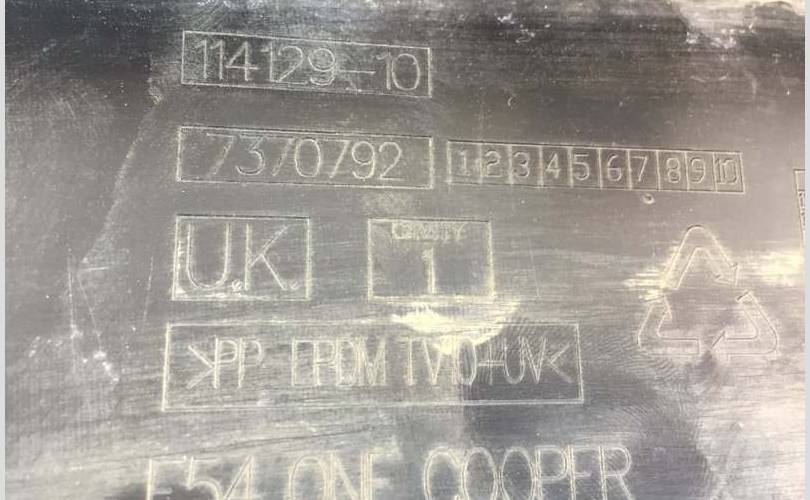 114129-10
7370792 1 2 3 4 5 6 7 8 9 10
U.K. CAVITY 1
>PP EPDM TV10+UV<
F54 ONE COOPER